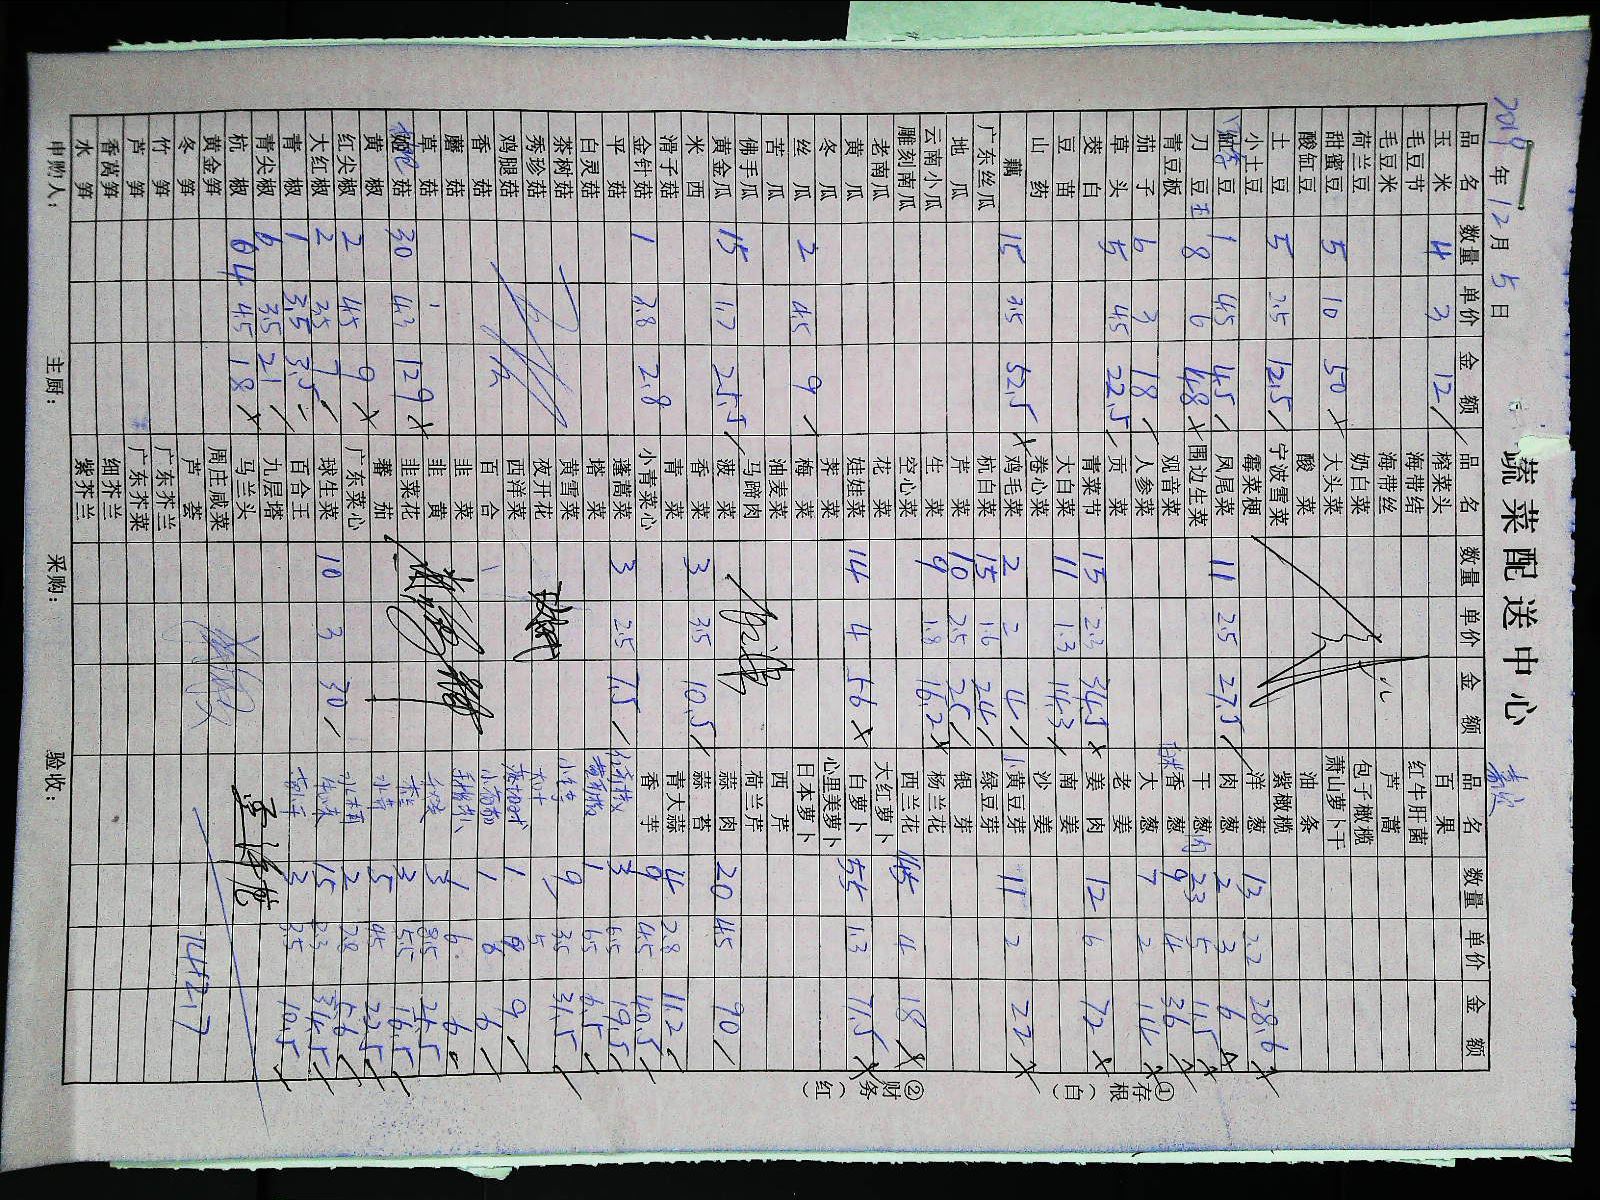 蔬菜配送中心
2019年12月5日
品名 数量 单价 金额 品名 数量 单价 金额 品名 数量 单价 金额
玉米 4 3 12 榨菜头 百果
毛豆节 海带结 红牛肝菌
毛豆米 海带丝 芦蒿
荷兰豆 奶白菜 包子橄榄
甜蜜豆 5 10 50 大头菜 萧山萝卜干
酸缸豆 酸菜 油条
土豆 5 2.5 12.5 宁波雪菜 紫橄榄
小土豆 霉菜梗 洋葱 13 2.2 28.6
豆 1 4.5 4.5 凤尾菜 11 2.5 27.5 肉葱 2 3 6
刀豆 8 6 48 围边生菜 干葱 23 5 11.5
青豆板 观音菜 香葱 9 4 36
茄子 6 3 18 人参菜 大葱 7 2 14
草头 5 4.5 22.5 贡菜 老姜
茭白 青菜节 15 2.3 34.5 姜肉 12 6 72
豆苗 大白菜 11 1.3 14.3 南姜
山药 卷心菜 沙姜
藕 15 3.5 52.5 鸡毛菜 2 2 4 小黄豆芽 11 2 22
广东丝瓜 杭白菜 15 1.6 24 绿豆芽
地瓜 芹菜 10 2.5 25 银芽
云南小瓜 生菜 9 1.8 16.2 杨兰花
雕刻南瓜 空心菜 西兰花 4.5 4 18
老南瓜 花菜 大红萝卜
黄瓜 娃娃菜 14 4 56 白萝卜 55 1.3 71.5
冬瓜 芥菜 心里美萝卜
丝瓜 2 4.5 9 梅菜 日本萝卜
苦瓜 油麦菜 西芹
佛手瓜 马蹄肉 荷兰芹
黄金瓜 15 1.7 25.5 菠菜 蒜肉 20 4.5 90
米西 香菜 3 3.5 10.5 蒜苔
滑子菇 青菜 青大蒜 4 2.8 11.2
金针菇 1 2.8 2.8 小青菜心 香芋 9 4.5 40.5
平菇 蓬蒿菜 3 2.5 7.5 3 6.5 19.5
白灵菇 塔菜 1 6.5 6.5
茶树菇 黄雪菜 9 3.5 31.5
秀珍菇 夜开花
鸡腿菇 西洋菜 1 9 9
香菇 百合 1 6 6
蘑菇 韭菜 1 6 6
草菇 韭黄 3 8.5 25.5
菇 30 4.3 129 韭菜花 3 5.5 16.5
黄椒 蕃茄 5 4.5 22.5
红尖椒 2 4.5 9 广东菜心 2 2.8 5.6
大红椒 2 3.5 7 球生菜 10 3 30 15 2.3 34.5
青椒 1 3.5 3.5 百合王 3 3.5 10.5
青尖椒 6 3.5 21 九层塔
杭椒 4 4.5 18 马兰头
黄金笋 周庄咸菜
冬笋 芦荟 1421.7
竹笋 广东芥兰
芦笋 广东芥菜
香莴笋 细芥兰
水笋 紫芥兰
申购人： 主厨： 采购： 验收：
①存根（白）
②财务（红）